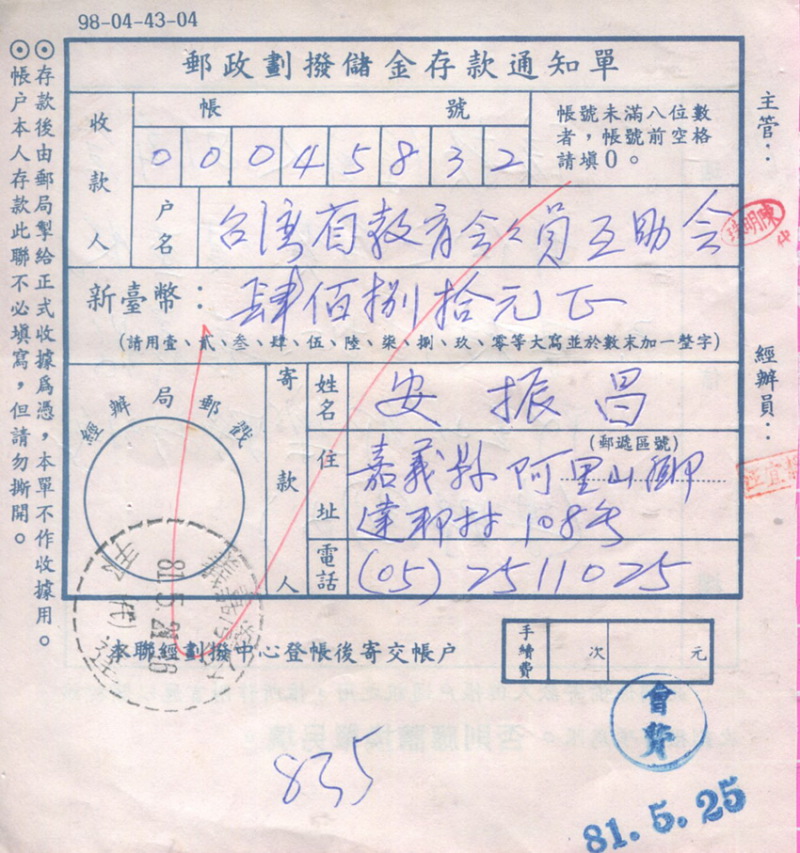 98-04-43-04
郵政劃撥儲金存款通知單
收款人
帳號
0 0 0 4 5 8 3 2
帳號未滿八位數
者，帳號前空格
請填0。
戶名
台湾省教育会会員互助会
新臺幣：
肆佰捌拾元正
(請用壹、貳、叁、肆、伍、陸、柒、捌、玖、零等大寫並於數末加一整字)
經辦局郵戳
寄款人
姓名
安振昌
住址
(郵遞區號)
嘉義縣阿里山鄉
達邦村108号
電話
(05)2511025
本聯經劃撥中心登帳後寄交帳戶
手續費
次
元
主管：
陳明
經辦員：
◎存款後由郵局掣給正式收據為憑，本單不作收據用。
◎帳户本人存款此聯不必填寫，但請勿撕開。
81.5.21
會費
835
81.5.25